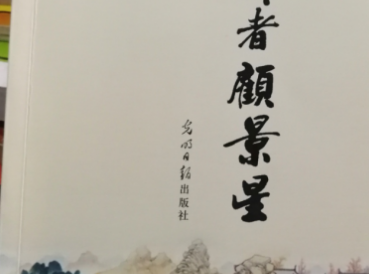 者顧景星
光明日報出版社